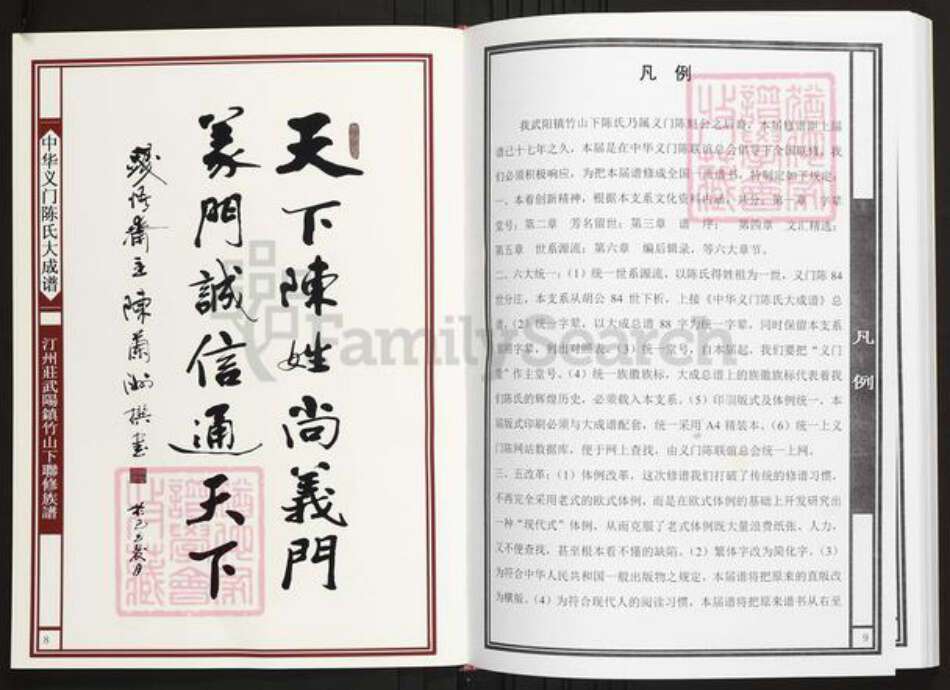 中华义门陈氏大成谱
汀州莊武陽鎮竹山下聯修族譜
8
天下陳姓尚義門
義門誠信通天下
齋主陳蘭洲撰書
FamilySearch
凡 例
我武阳镇竹山下陈氏乃属义门陈 公之后裔，本届修谱距上届
谱已十七年之久，本届是在中华义门陈联谊总会倡导下全国联修，我
们必须积极响应，为把本届谱修成全国一流谱书，特制定如下规定：
一、本着创新精神，根据本支系文化资料内涵，共分：第一章 字辈
堂号；第二章 芳名留世；第三章 谱 序； 第四章 文汇精选；
第五章 世系源流；第六章 编后辑录，等六大章节。
二、六大统一：（1）统一世系源流，以陈氏得姓祖为一世，义门陈 84
世分庄，本支系从胡公 84 世下析，上接《中华义门陈氏大成谱》总
谱。（2）统一字辈，以大成总谱 88 字为统一字辈，同时保留本支系
字辈，列出对照表。（3）统一堂号，自本届起，我们要把“义门
堂”作主堂号。（4）统一族徽族标，大成总谱上的族徽族标代表着我
们陈氏的辉煌历史，必须载入本支系。（5）印刷版式及体例统一，本
届版式印刷必须与大成谱配套，统一采用 A4 精装本。（6）统一上义
门陈网站数据库，便于网上查找，由义门陈联谊总会统一上网。
三、五改革：（1）体例改革，这次修谱我们打破了传统的修谱习惯，
不再完全采用老式的欧式体例，而是在欧式体例的基础上开发研究出
一种“现代式”体例，从而克服了老式体例既大量浪费纸张、人力，
又不便查找，甚至根本看不懂的缺陷。（2）繁体字改为简化字。（3）
为符合中华人民共和国一般出版物之规定，本届谱将把原来的直版改
为横版。（4）为符合现代人的阅读习惯，本届谱将把原来谱书从右至
凡例
9